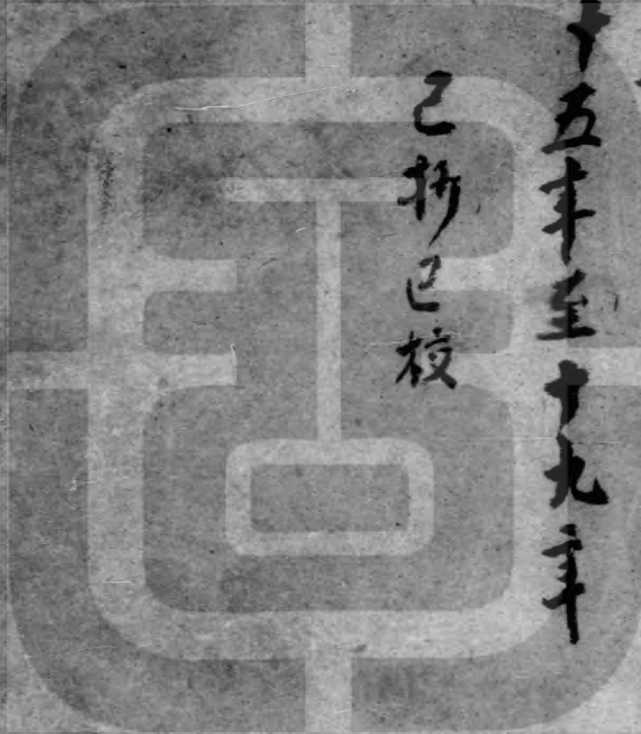 十五年至十九年
已抄已校